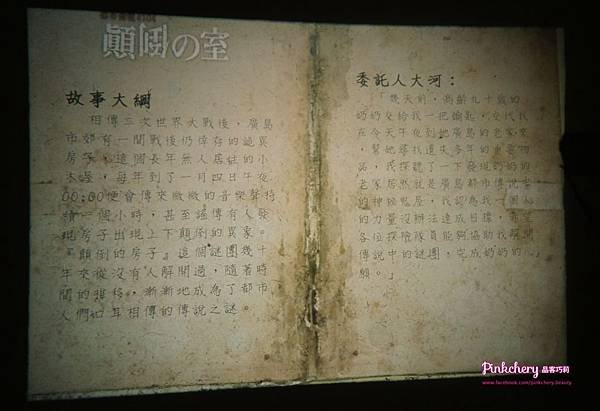 顛倒の室
故事大綱
相傳二次世界大戰後，廣島
市郊有一間戰後仍倖存的詭異
房子，這個長年無人居住的小
木屋，每年到了一月四日午夜
00:00便會傳來微微的音樂聲持
續一個小時，甚至謠傳有人發
現房子出現上下顛倒的異象。
『顛倒的房子』這個謎團幾十
年來從沒有人解開過，隨著時
間的推移，漸漸地成為了都市
人們口耳相傳的傳說之謎。
委託人大河：
「幾天前，高齡九十歲的
奶奶交給我一把鑰匙，交代我
在今天午夜到她廣島的老家來，
幫她尋找遺失多年的重要物
品，我探聽了一下發現奶奶的
老家居然就是廣島都市傳說裡
的神秘鬼屋，我認為我一個人
的力量沒辦法達成目標，希望
各位探險隊員能夠協助我解開
傳說中的謎團，完成奶奶的心
願。」
Pinkchery 品客巧莉
www.facebook.com/pinkchery.beauty